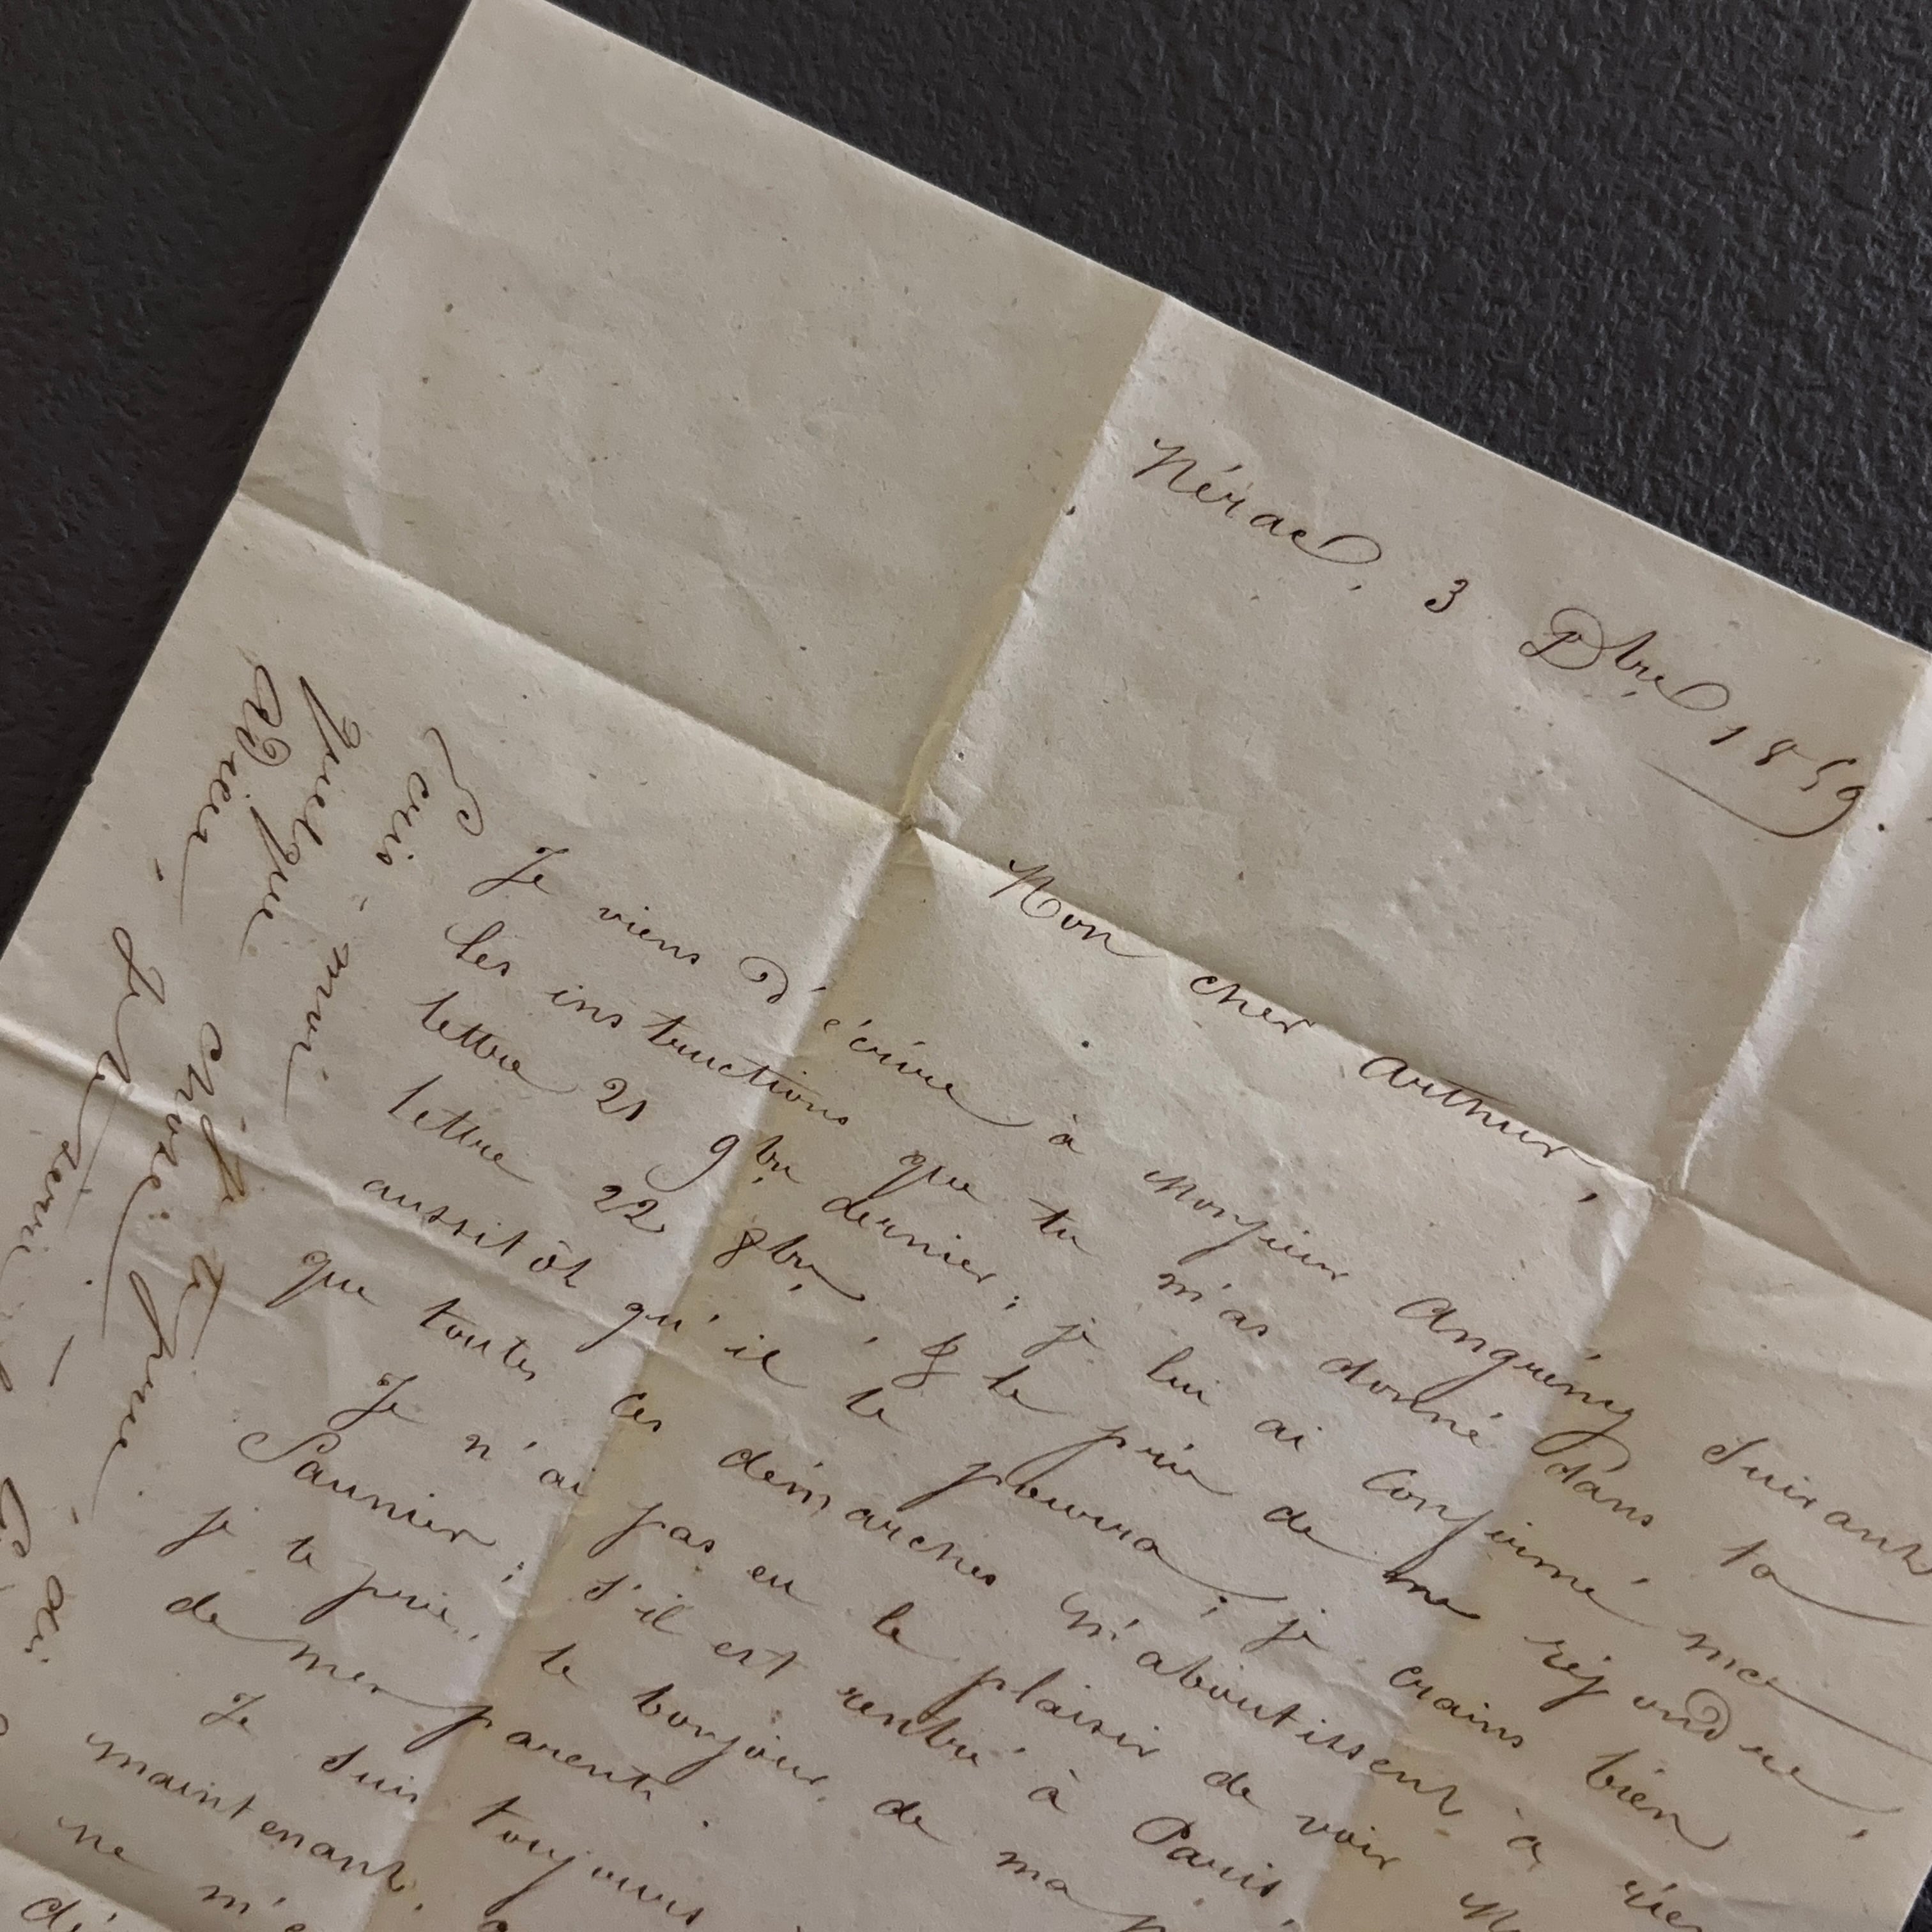 Nérac, 3 Dbre 1859
Mon cher Arthur,
Je viens d'écrire à Monsieur Anguény suivant
les instructions que tu m'as donné dans ta
lettre 21 9bre dernier; je lui ai confirmé ma
lettre 22 8bre, & le prie de me répondre,
aussitôt qu'il le pourra; je crains bien
que toutes ces démarches n'aboutissent à rien
Je n'ai pas eu le plaisir de voir M
Saunier; s'il est rentré à Paris,
je te prie, le bonjour de ma p
de mes parents.
Je suis toujours
maintenant,
ne m'e
dé
Ecris-moi
quelque chose, je te prie.
Adieu.